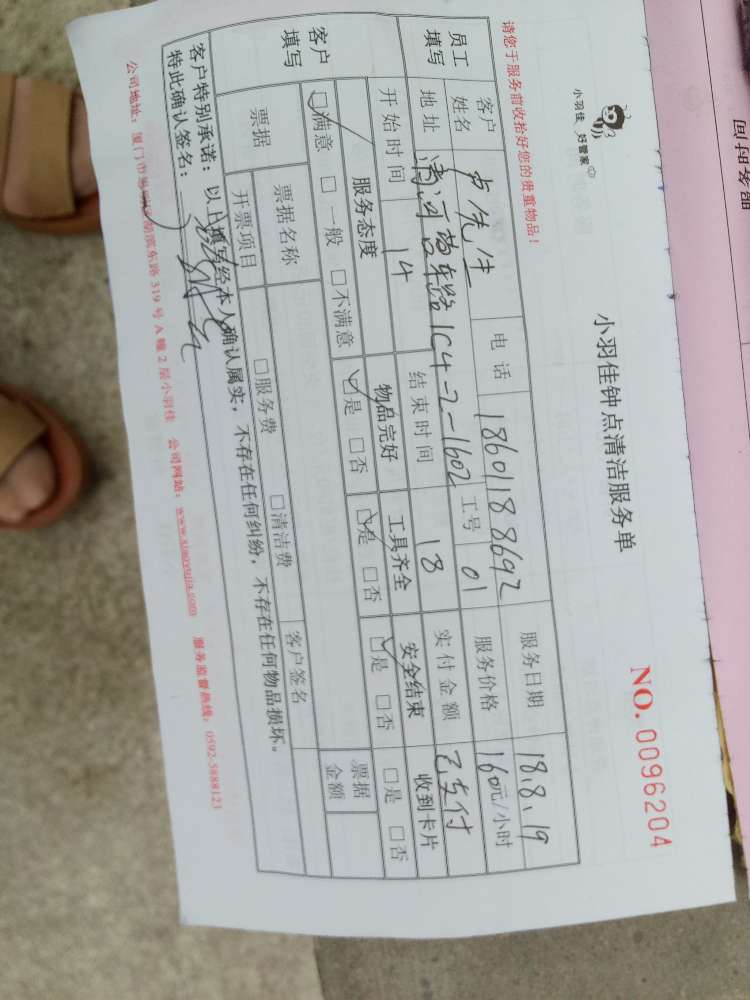 小羽佳 好管家
小羽佳钟点清洁服务单
NO. 0096204
请您于服务前收拾好您的贵重物品!
员工填写 客户姓名 卢先生 电话 18601188692 服务日期 18.8.19
地址 清河营东路1C4-2-1602 工号 01 服务价格 160元/小时
开始时间 14 结束时间 18 实付金额 已支付
客户填写 服务态度 物品完好 工具齐全 安全结束 收到卡片
☑满意 □一般 □不满意 ☑是 □否 ☑是 □否 ☑是 □否 □是 □否
票据 票据名称 客户签名 票据金额
开票项目 □服务费 □清洁费
客户特别承诺:以上填写经本人确认属实,不存在任何纠纷,不存在任何物品损坏。
特此确认签名:
公司地址:厦门市 湖滨东路319号A幢2层小羽佳 公司网站:www.xiaoyujia.com 服务监督热线:0592-5888123